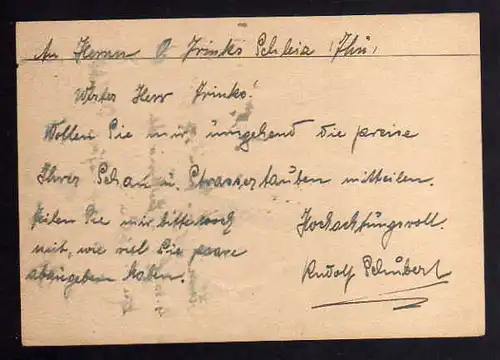 An Herrn O Frinks Schleiz /Thü,
Wertes Herr Frinks!
Wollen Sie mir umgehend die preise
Ihrer Schau u. Strassertauben mitteilen.
teilen Sie mir bitte noch
mit, wie viel Sie paare
abzugeben haben.
Hochachtungsvoll.
Rudolf Schubert